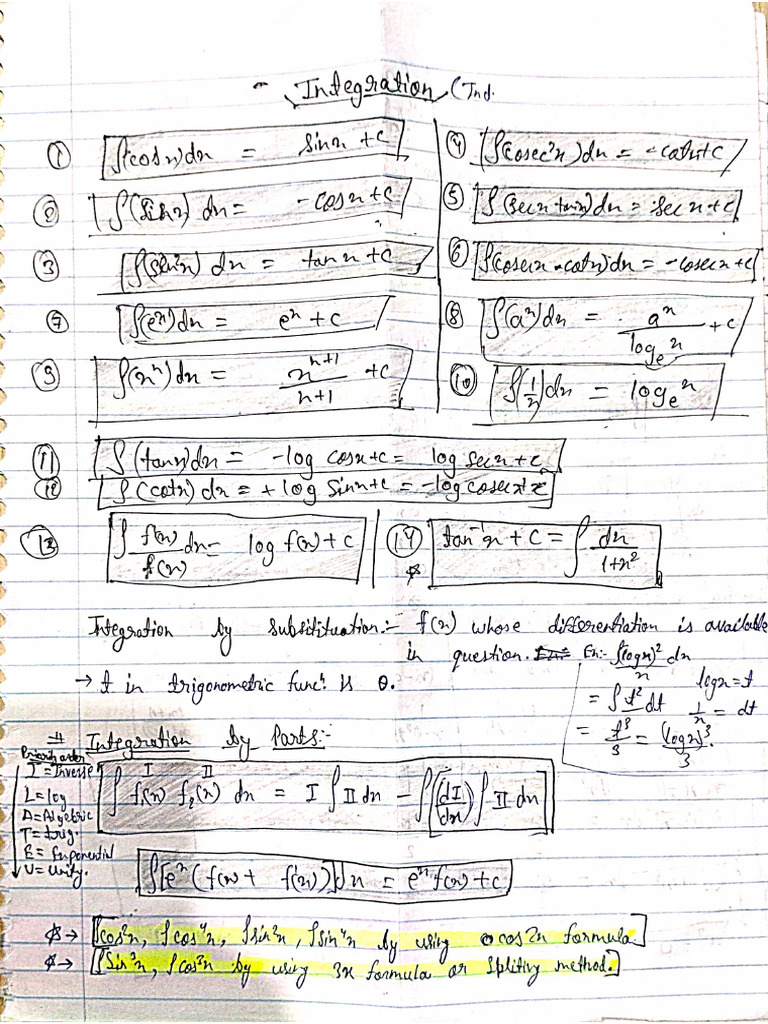 - Integration (Ind.
① ∫(cosx)dx = sinx + c
④ ∫(cosec²x)dx = -cotx+c
② ∫(sinx) dx = -cosx+c
⑤ ∫(secx tanx)dx = secx+c
③ ∫(sec²x) dx = tanx+c
⑥ ∫(cosecx·cotx)dx = -cosecx+c
⑦ ∫(eˣ)dx = eˣ + c
⑧ ∫(aˣ)dx = aˣ/logₑx + c
⑨ ∫(xⁿ)dx = xⁿ⁺¹/n+1 + c
⑩ ∫(1/x)dx = logₑx
⑪ ∫(tanx)dx = -log cosx+c = log secx+c
⑫ ∫(cotx)dx = + log sinx+c = -log cosecx+c
⑬ ∫ f'(x)/f(x) dx = log f(x) + c
⑭ tan⁻¹x + c = ∫ dx/1+x²
Integration by subsitituation:- f(x) whose differentiation is available
in question. Ex:- ∫(logx)²/x dx
→ t in trigonometric funcⁿ is θ.
logx = t
= ∫t² dt 1/x = dt
= t³/3 = (logx)³/3.
# Integration by Parts:-
Priority order
I = Inverse
L = log
A = Algebric
T = trig.
E = Exponential
U = Unity.
I II
∫ f₁(x) f₂(x) dx = I ∫ II dx - ∫[(dI/dx) ∫ II dx]
∫[eˣ (f(x) + f'(x))]dx = eˣ f(x) + c
→ [∫cos²x, ∫cos⁴x, ∫sin²x, ∫sin⁴x by using cos2x formula.]
→ [∫sin³x, ∫cos³x by using 3x formula or spliting method.]